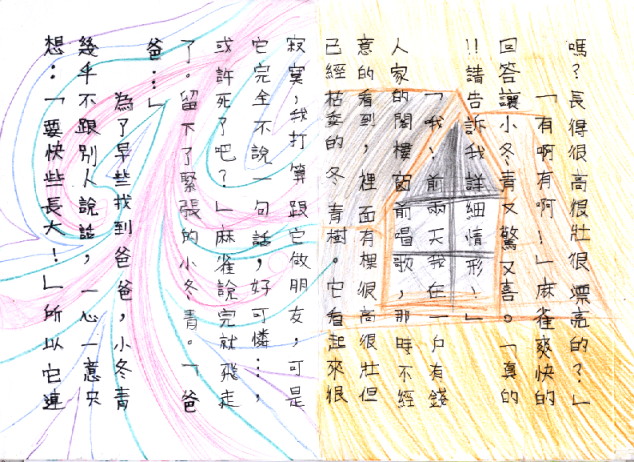 嗎?長得很高很壯很漂亮的?」
「有啊有啊!」麻雀爽快的
回答讓小冬青又驚又喜。「真的
!!請告訴我詳細情形!」
「哦!前兩天我在一戶有錢
人家的閣樓窗前唱歌,那時不經
意的看到,裡面有棵很高很壯但
已經枯萎的冬青樹。它看起來很
寂寞,我打算跟它做朋友,可是
它完全不說一句話,好可憐…,
或許死了吧?」麻雀說完就飛走
了。留下了緊張的小冬青。「爸
爸…」
為了早些找到爸爸,小冬青
幾乎不跟別人說話,一心一意只
想:「要快些長大!」所以它連